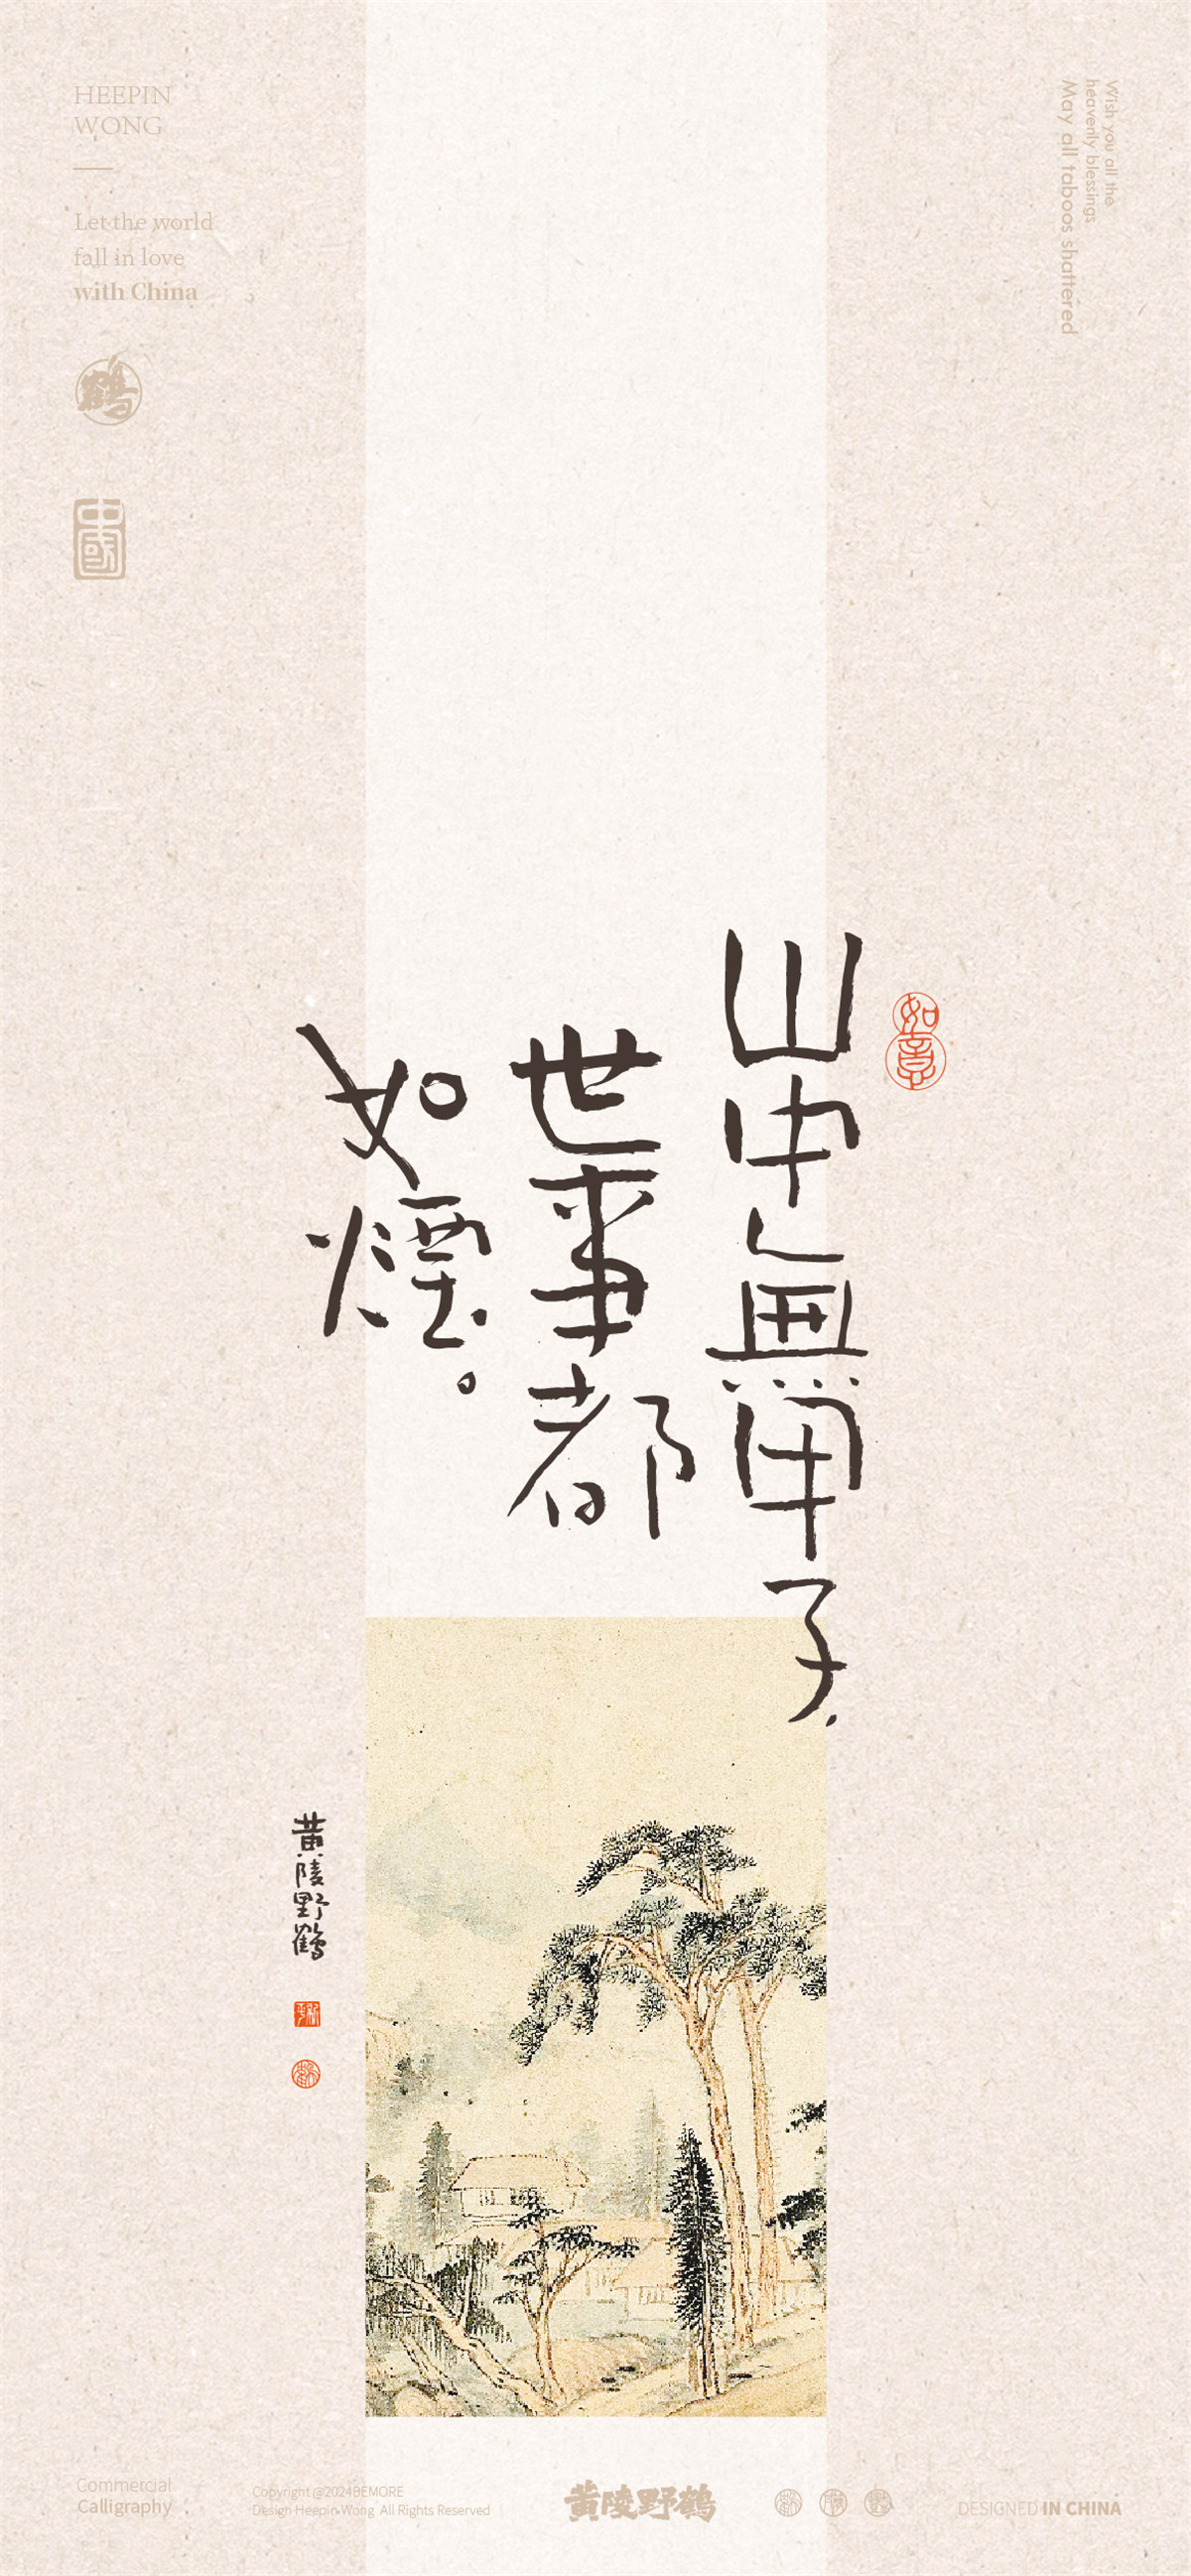 HEEPIN
WONG
Let the world
fall in love
with China
鶴
中國
Wish you all the
heavenly blessings
May all taboos shattered
如意
山中無甲子，
世事都
如煙。
黄陵野鶴
Commercial
Calligraphy
Copyright @2024BEMORE
Design Heepin Wong All Rights Reserved
黄陵野鶴
DESIGNED IN CHINA